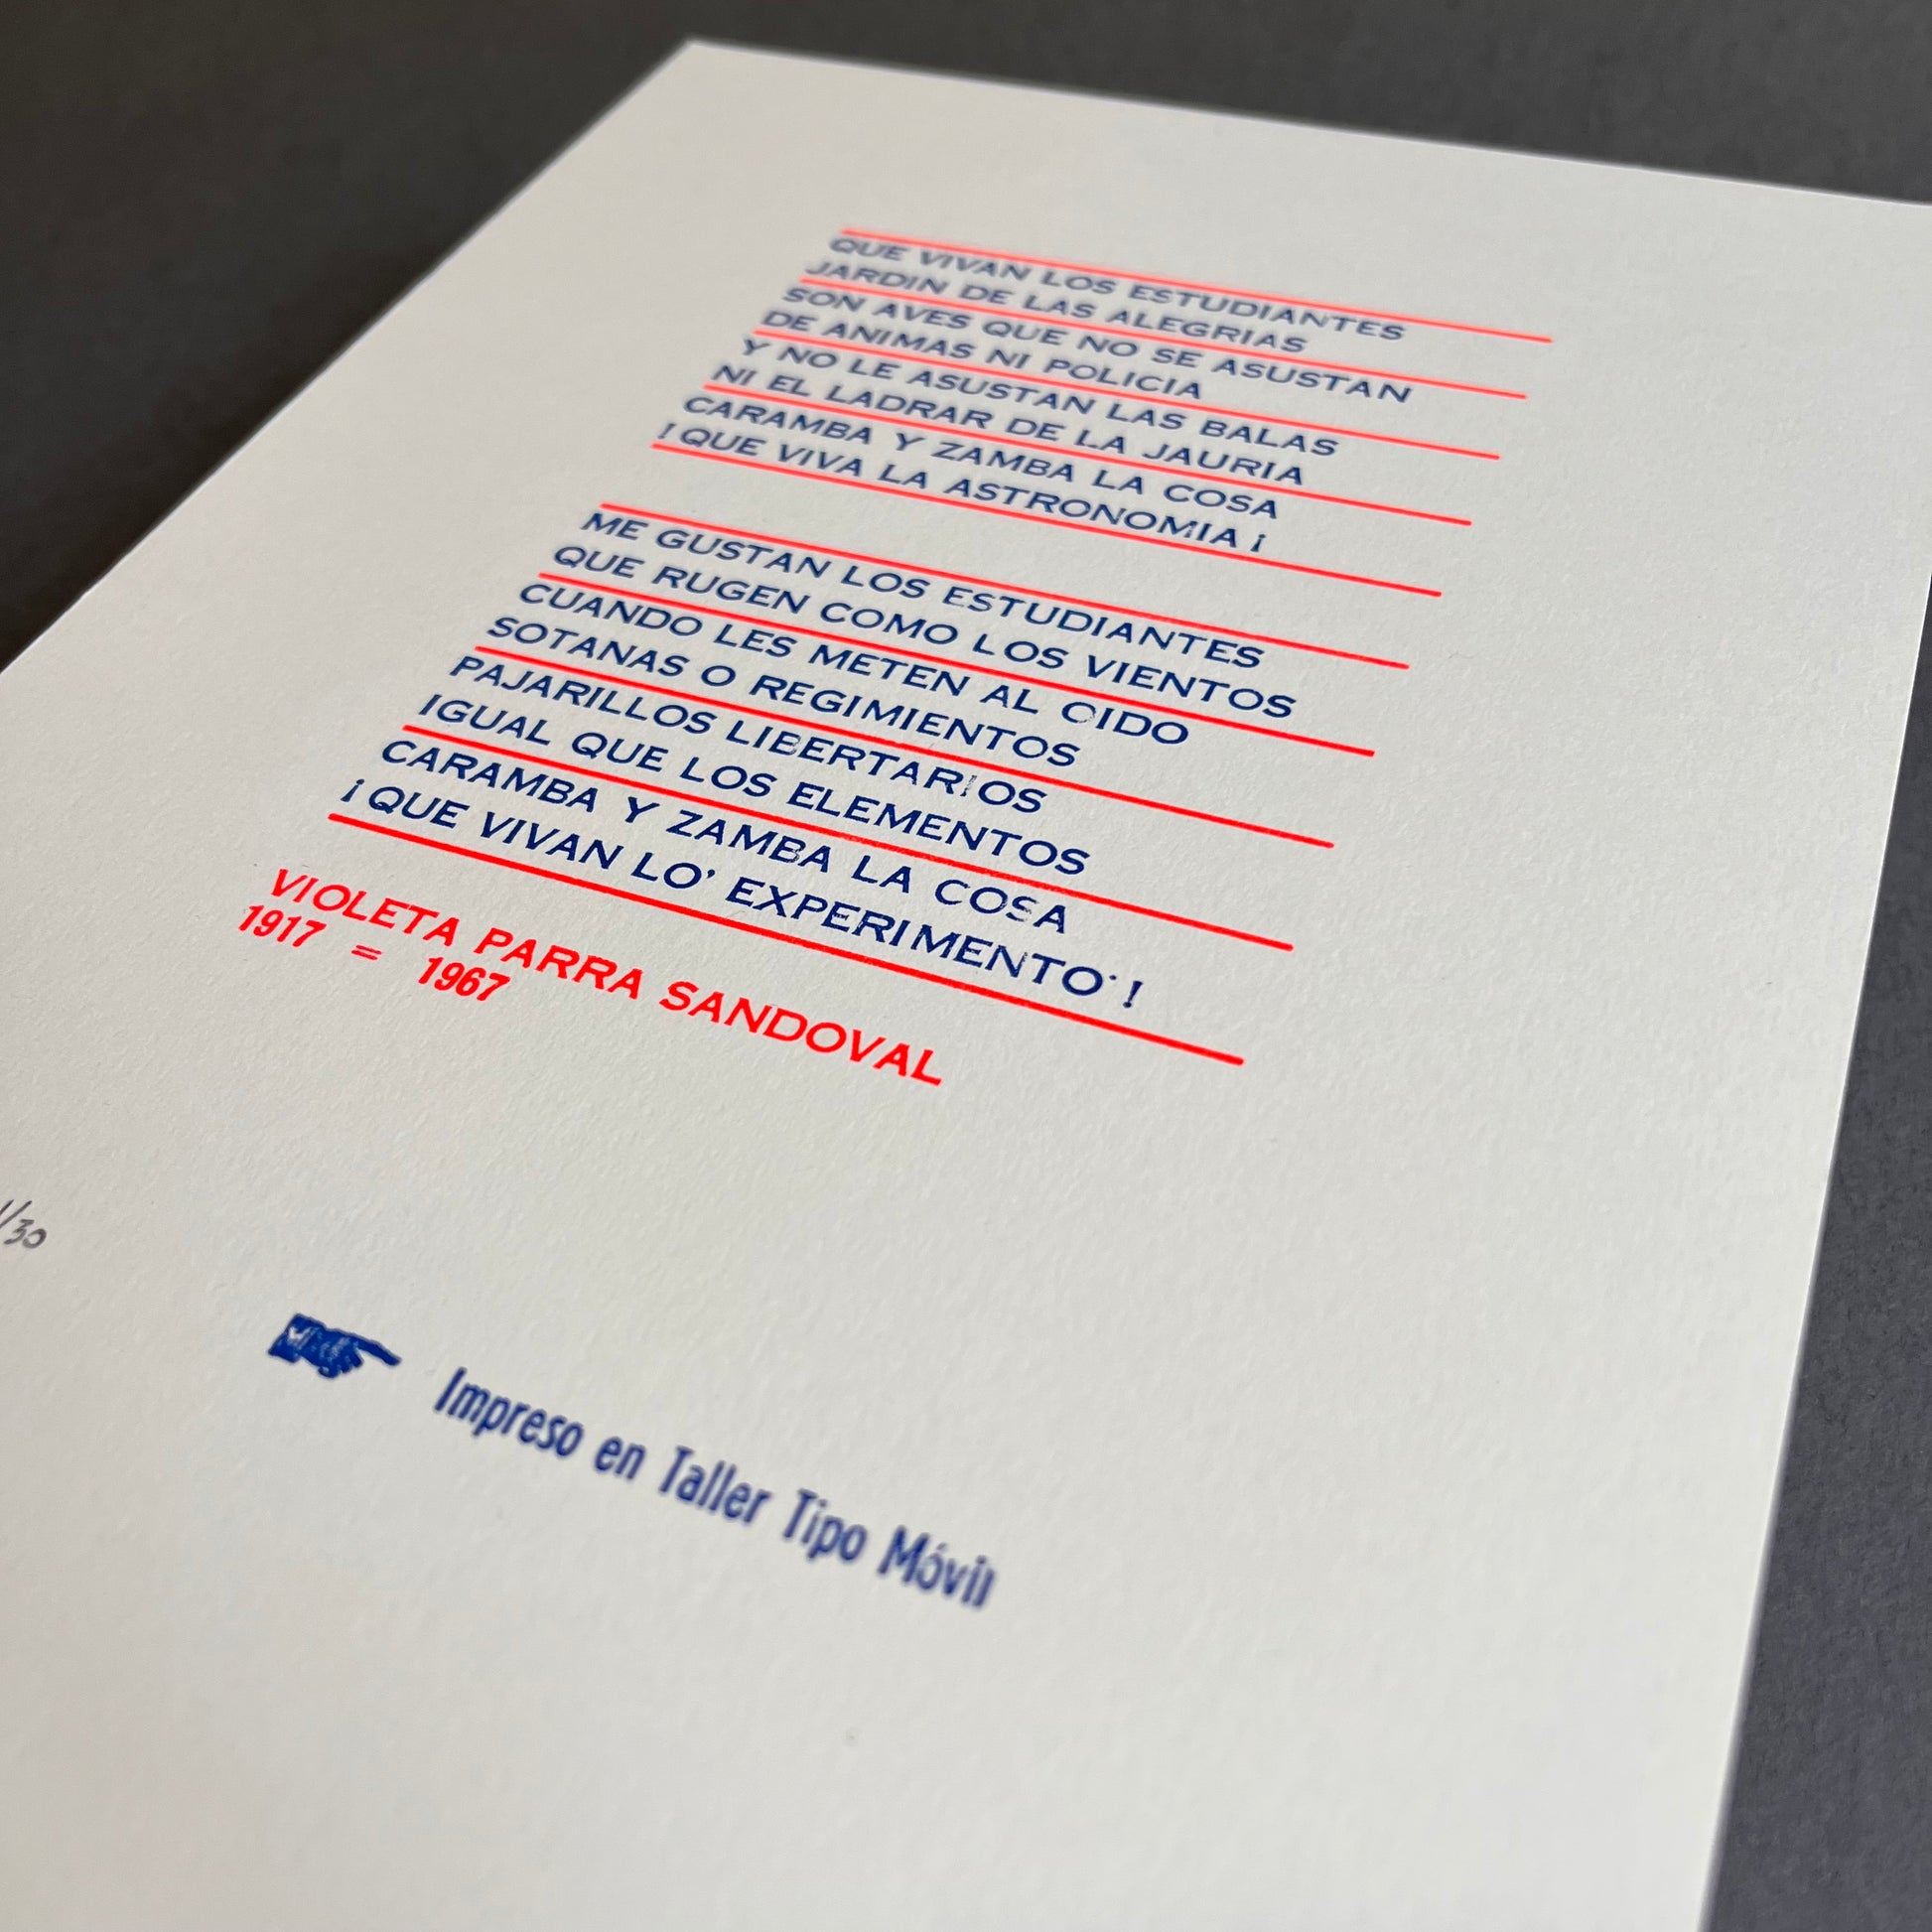 QUE VIVAN LOS ESTUDIANTES
JARDIN DE LAS ALEGRIAS
SON AVES QUE NO SE ASUSTAN
DE ANIMAS NI POLICIA
Y NO LE ASUSTAN LAS BALAS
NI EL LADRAR DE LA JAURIA
CARAMBA Y ZAMBA LA COSA
! QUE VIVA LA ASTRONOMIA ¡
ME GUSTAN LOS ESTUDIANTES
QUE RUGEN COMO LOS VIENTOS
CUANDO LES METEN AL OIDO
SOTANAS O REGIMIENTOS
PAJARILLOS LIBERTARIOS
IGUAL QUE LOS ELEMENTOS
CARAMBA Y ZAMBA LA COSA
¡ QUE VIVAN LO' EXPERIMENTO' !
VIOLETA PARRA SANDOVAL
1917 = 1967
/30
Impreso en Taller Tipo Móvil